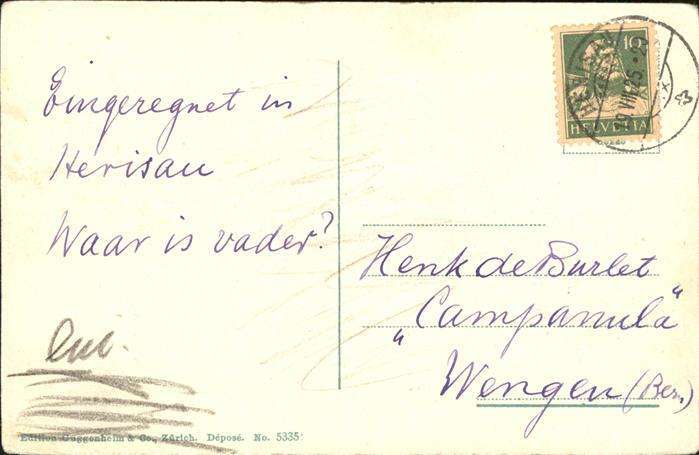 Eingeregnet in
Herisau
Waar is vader?
10
HELVETIA
HERISAU
29.VIII.25
Henk de Burlet
„Campanula“
Wengen (Bern.)
Edition Guggenheim & Co., Zürich. Déposé. No. 5335